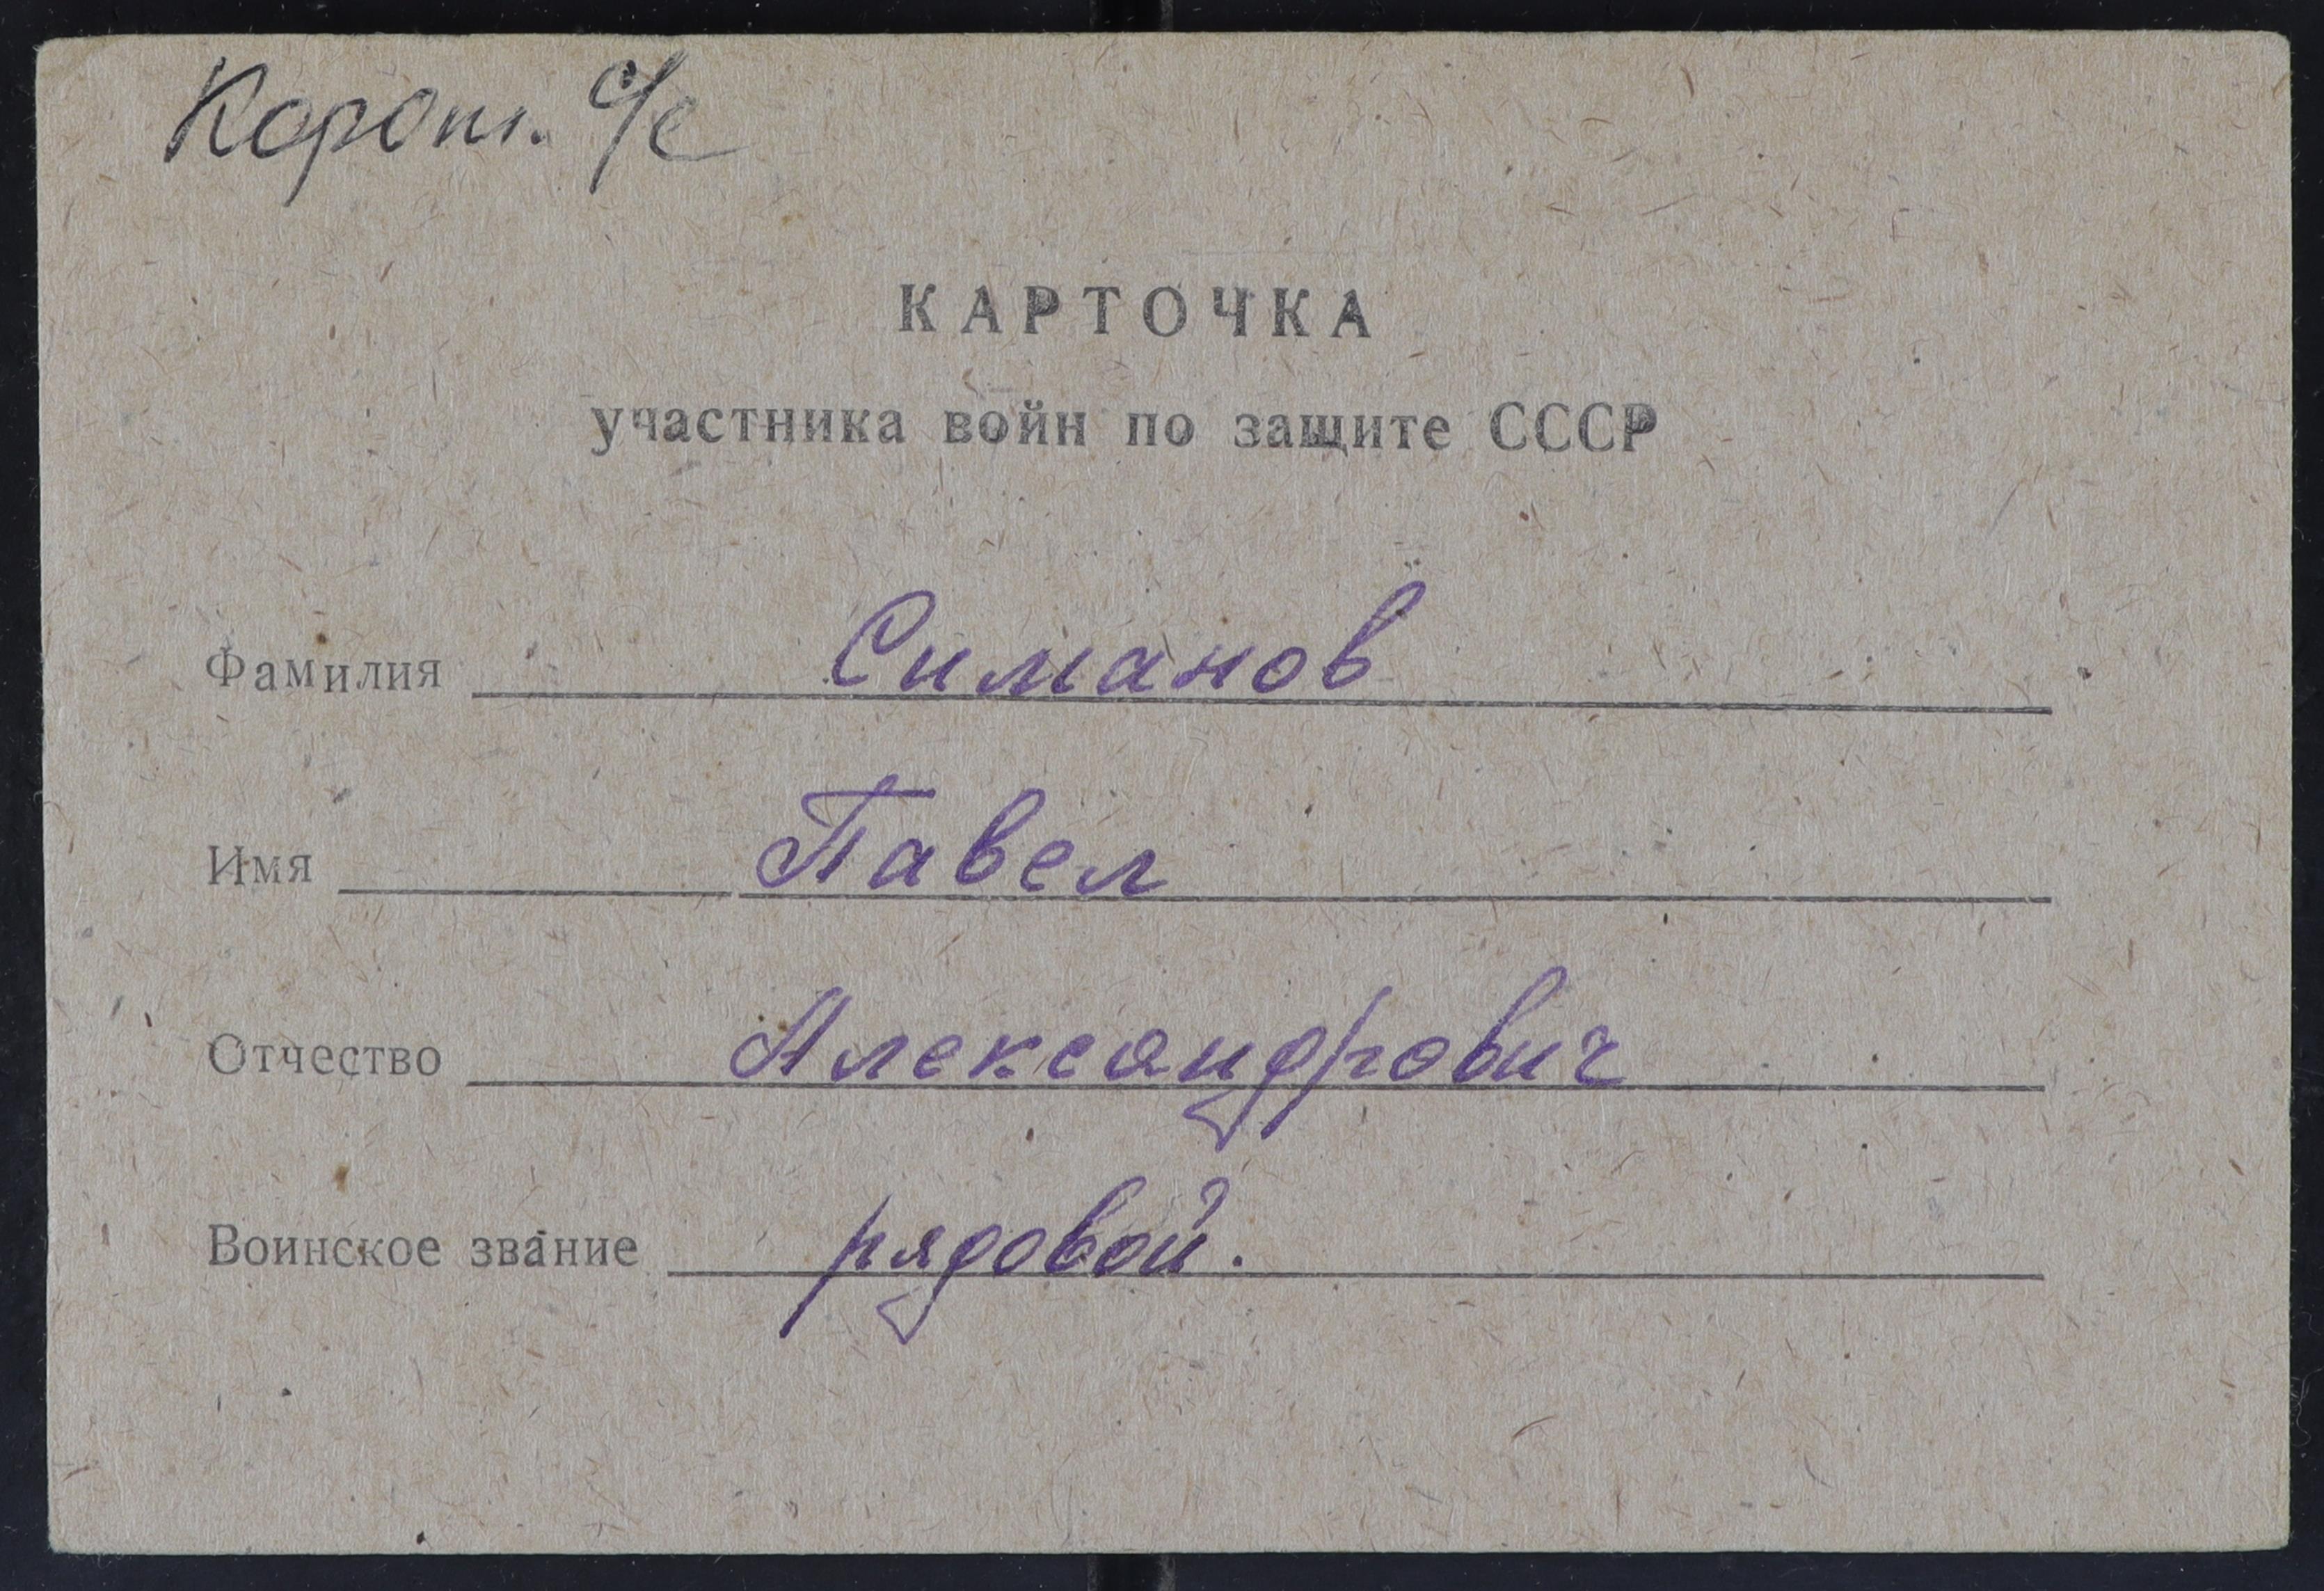 Корот. с/с
КАРТОЧКА
участника войн по защите СССР
Фамилия Симанов
Имя Павел
Отчество Александрович
Воинское звание рядовой.